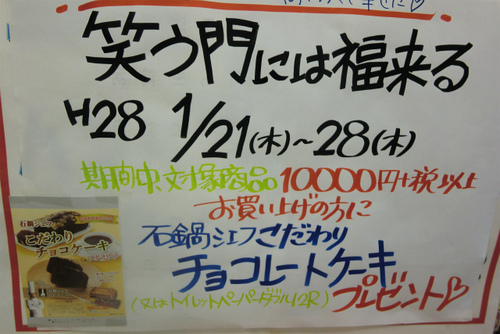 笑う門には福来る
H28 1/21(木)～28(木)
期間中、対象商品10000円+税以上
お買い上げの方に
石鍋シェフこだわり
チョコレートケーキ
(又はトイレットペーパーダブル12R)プレゼント♡
石鍋シェフの
こだわり
チョコケーキ